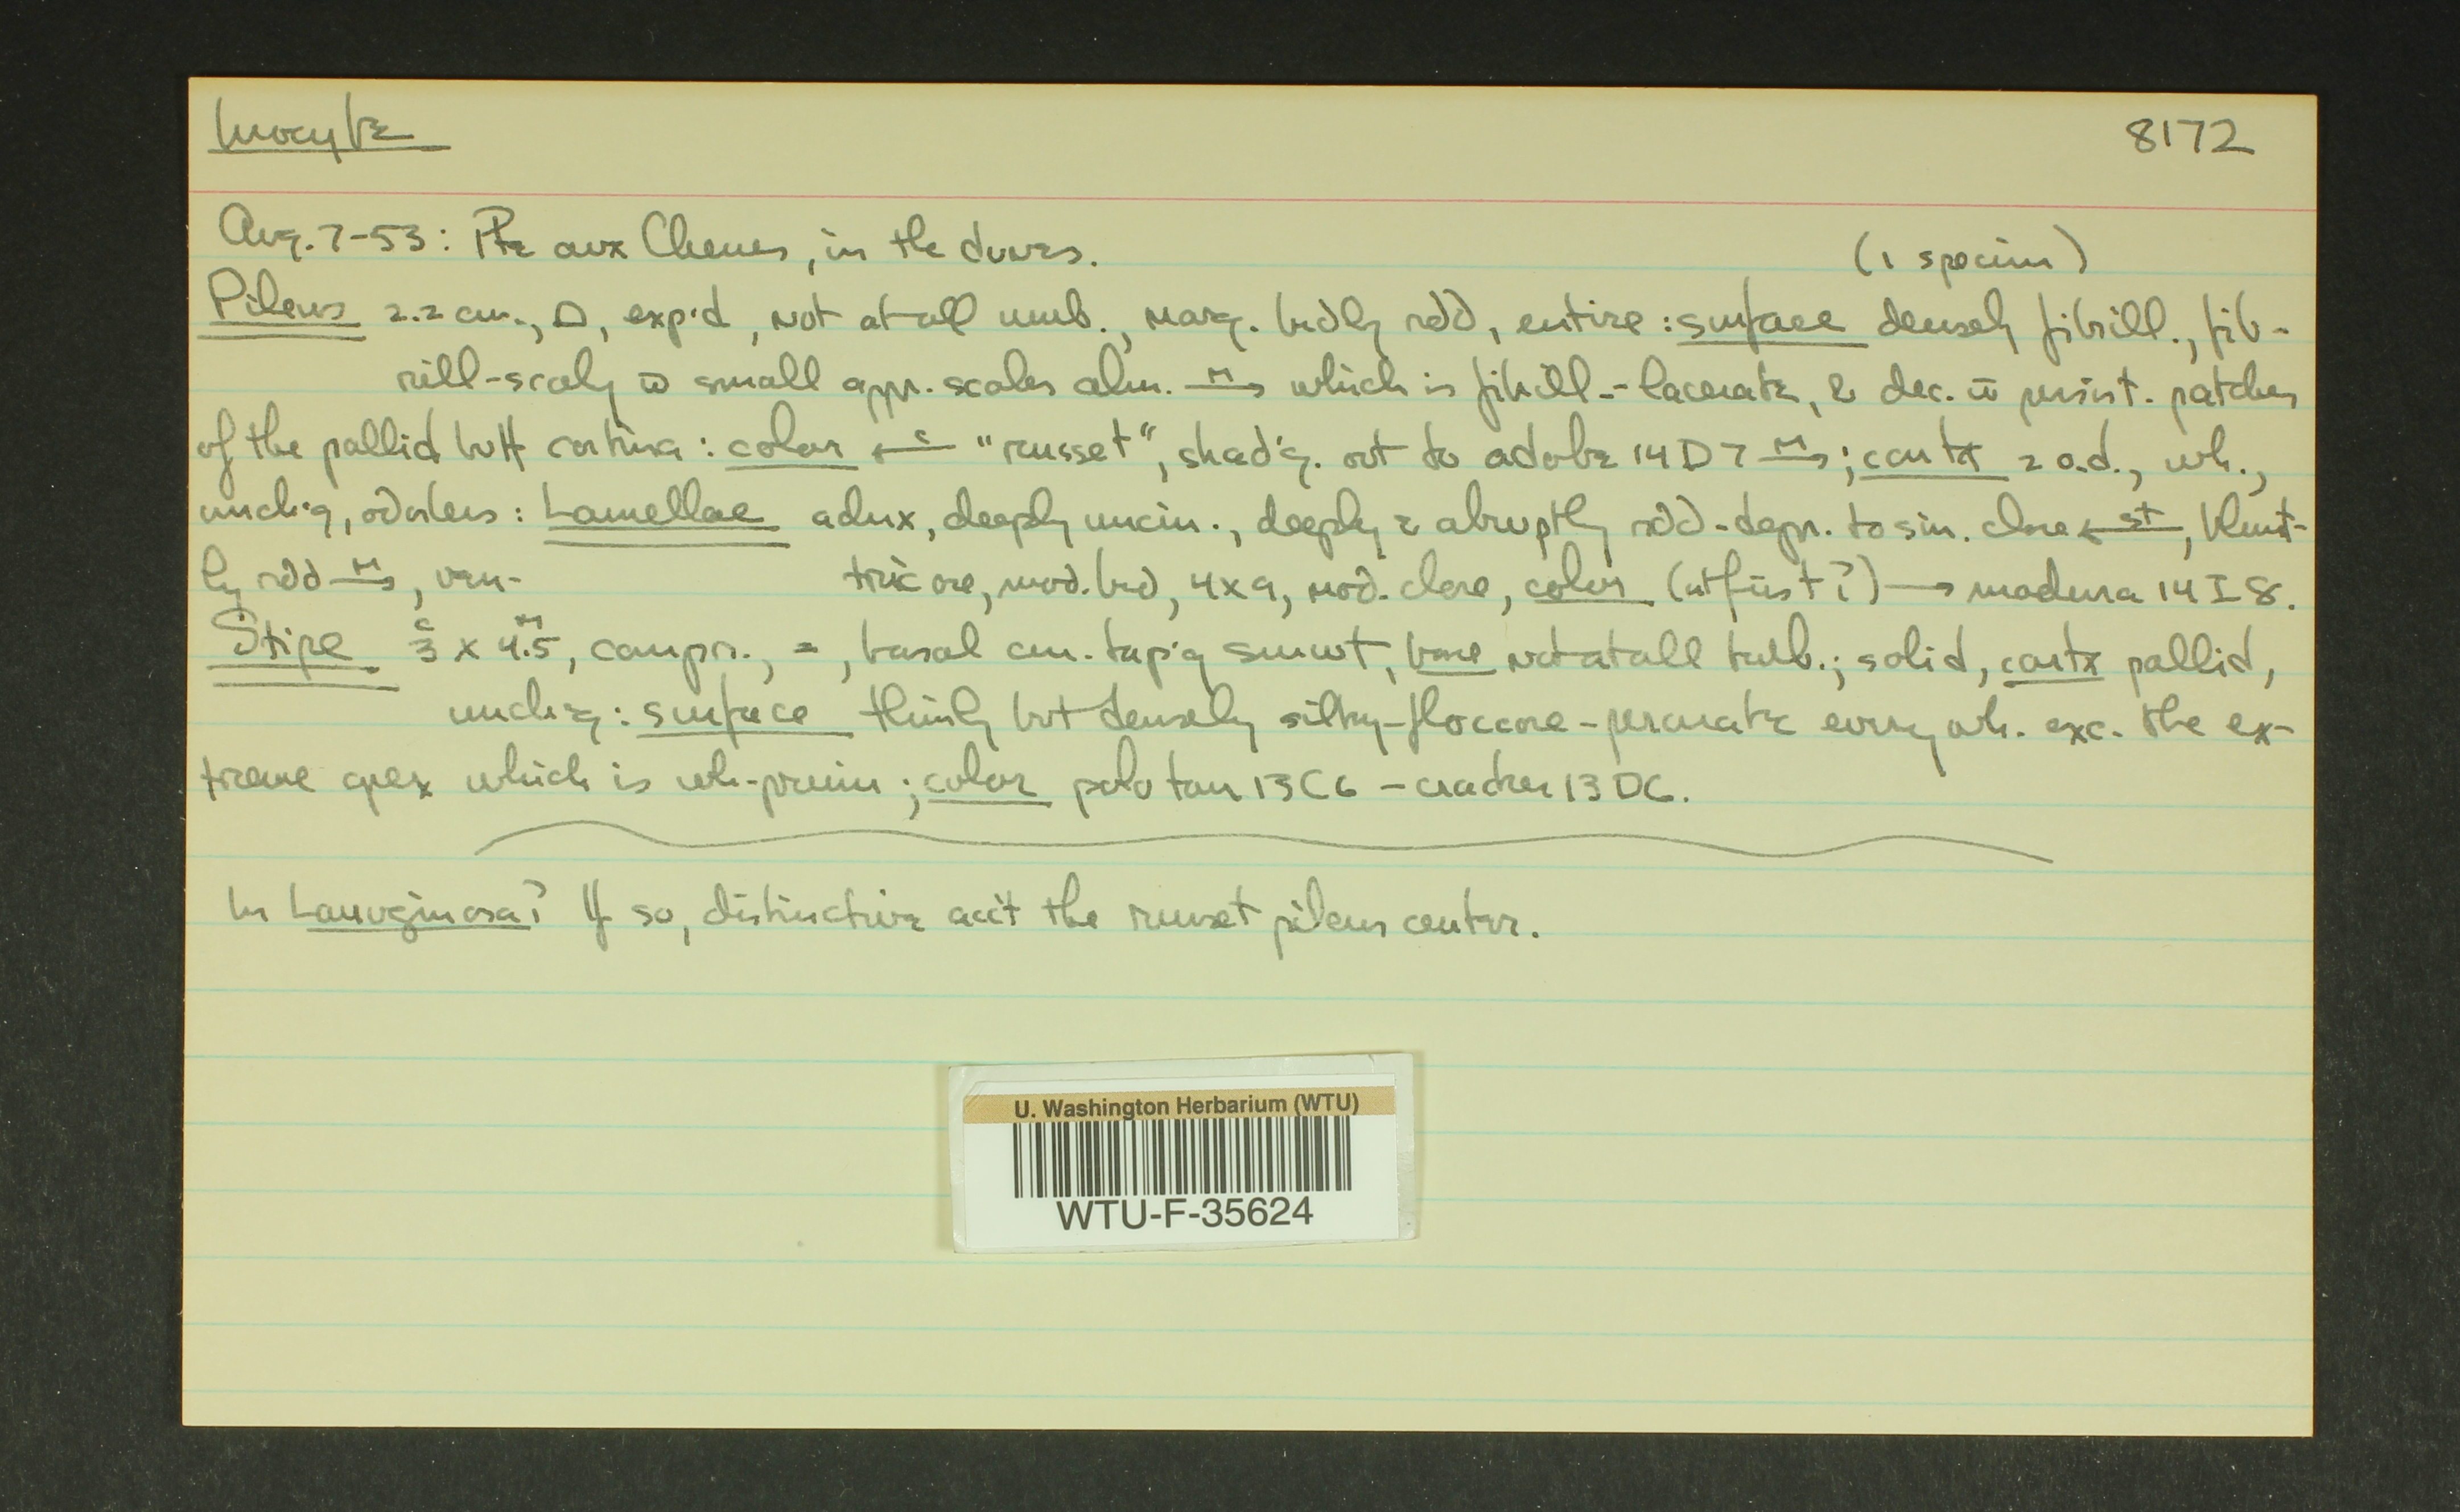 Inocybe 8172
Aug. 7-53: Pte aux Chenes, in the dunes. (1 specim)
Pileus 2.2 cm., D, exp'd, not at all umb., marg. brdly rdd, entire: surface densely fibrill., fib-
rill-scaly w̄ small appr. scales alm. M→ which is fibrill-lacerate, & dec. w̄ persist. patches
of the pallid buff cortina: color ←c "russet", shad'g. out to adobe 14 D 7 M→; contx 2 o.d., wh.,
unch'g, odorless: Lamellae adnx, deeply uncin., deeply & abruptly rdd-depr. to sin. close ←st, blunt-
ly rdd M→, ven- tricose, mod. brd, 4x9, mod. close, color (at first?) → madura 14 I 8.
Stipe 3 c x 4.5 M, compr., =, basal cm. tap'g smwt, base not at all bulb.; solid, contx pallid,
unch'g: surface thinly but densely silky-floccose- everywh. exc. the ex-
treme apex which is wh-pruin; color polo tan 13 C 6 - cracker 13 D 6.
In Lanuginosa? If so, distinctive acc't the russet pileus center.
U. Washington Herbarium (WTU)
WTU-F-35624